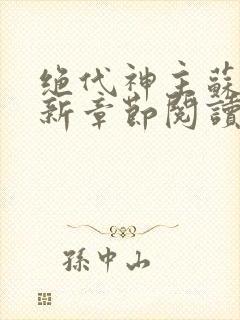 绝代神主蘇
新章節閱讀
孫中山